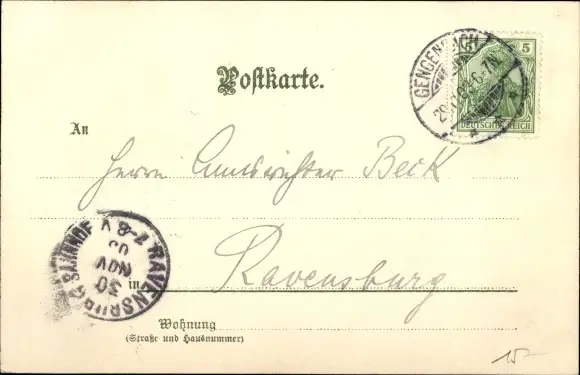 Postkarte.
GENGENBACH
5
DEUTSCHES REICH
An
Herrn Amtsrichter Beck
RAVENSBURG BAHNHOF
7-8 V
30
NOV
in Ravensburg
Wohnung
(Straße und Hausnummer)
15-